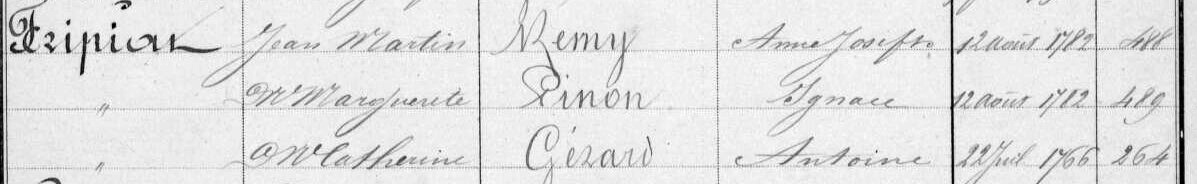 Fripiat Jean Martin Remy Anne Joseph 12 août 1782 488
" M Marguerete Pinon Ignace 12 août 1782 489
" M Catherine Gérard Antoine 22 Juil 1766 264